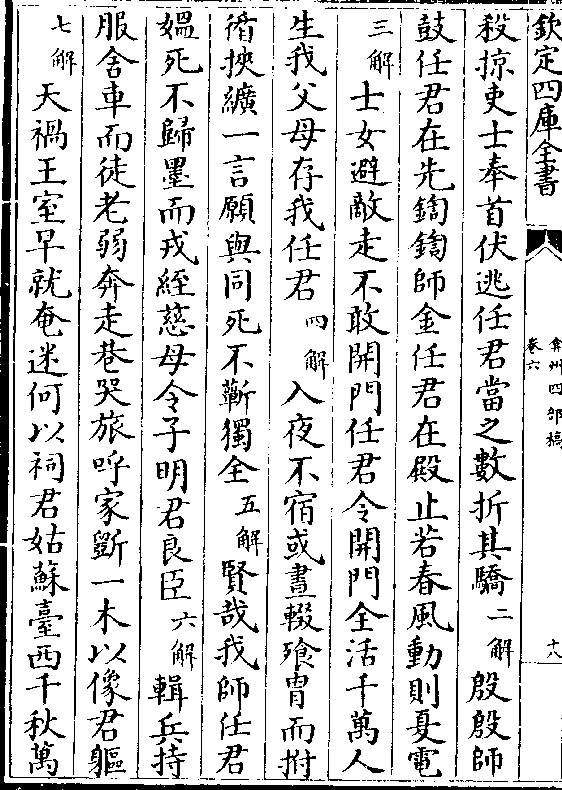 欽定四庫全書
弇州四部稿
卷六
十八
殺掠吏士奉首伏逃任君當之數折其驕二解殷殷師
鼓任君在先鍧鍧師金任君在殿止若春風動則夏電
三解士女避敵走不敢開門任君令開門全活千萬人
生我父母存我任君四解入夜不宿或晝輟飱胄而拊
循挾纊一言願與同死不蘄獨全五解賢哉我師任君
媼死不歸墨而戎絰慈母令子明君良臣六解輯兵持
服舍車而徒老弱奔走巷哭旅呼家斵一木以像君軀
七解天禍王室早就奄迷何以祠君姑蘇臺西千秋萬